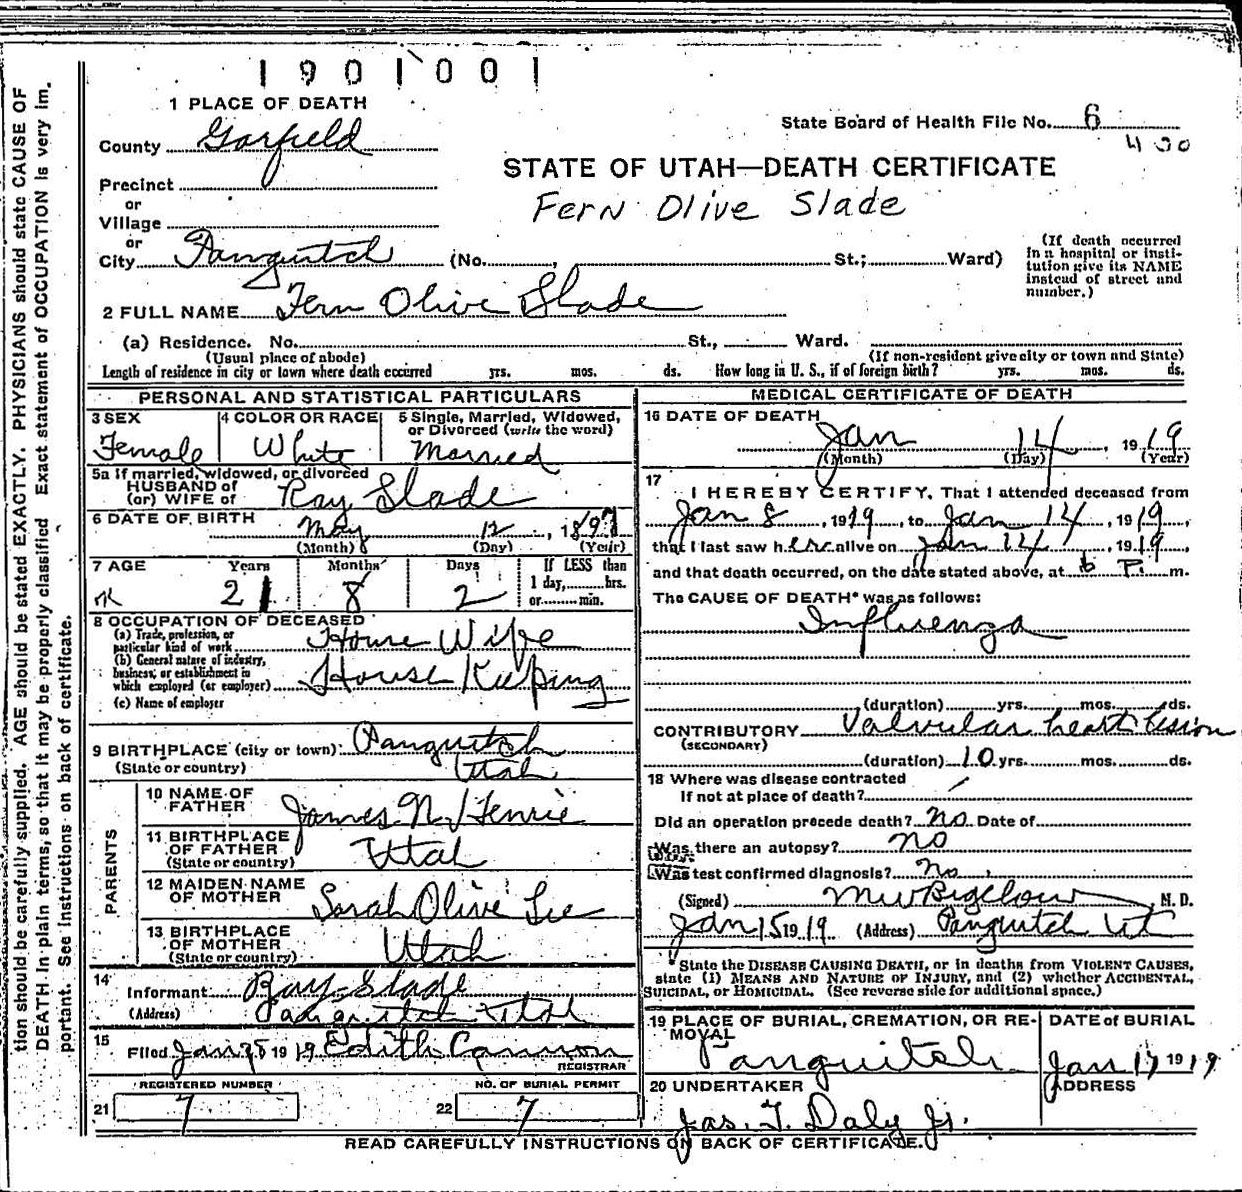 1901001
1 PLACE OF DEATH
State Board of Health File No. 6
430
County Garfield
STATE OF UTAH—DEATH CERTIFICATE
Precinct
Fern Olive Slade
or
Village
or
City Panguitch (No. , St.; Ward)
(If death occurred in a hospital or institution give its NAME instead of street and number.)
2 FULL NAME Fern Olive Slade
(a) Residence. No. St., Ward.
(Usual place of abode) (If non-resident give city or town and State)
Length of residence in city or town where death occurred yrs. mos. ds. How long in U. S., if of foreign birth? yrs. mos. ds.
PERSONAL AND STATISTICAL PARTICULARS
3 SEX Female
4 COLOR OR RACE White
5 Single, Married, Widowed,
or Divorced (write the word)
Married
5a If married, widowed, or divorced
HUSBAND of
(or) WIFE of Ray Slade
6 DATE OF BIRTH May 12, 1897
(Month) (Day) (Year)
7 AGE Years Months Days If LESS than
1 day, hrs.
or min.
21 8 2
8 OCCUPATION OF DECEASED
(a) Trade, profession, or
particular kind of work House Wife
(b) General nature of industry,
business, or establishment in
which employed (or employer) House Keeping
(c) Name of employer
9 BIRTHPLACE (city or town) Panguitch
(State or country) Utah
PARENTS
10 NAME OF
FATHER James N. Henrie
11 BIRTHPLACE
OF FATHER
(State or country) Utah
12 MAIDEN NAME
OF MOTHER Sarah Olive Lee
13 BIRTHPLACE
OF MOTHER
(State or country) Utah
14
Informant Ray Slade
(Address) Panguitch Utah
15
Filed Jan 1919 Edith Cannon
REGISTRAR
REGISTERED NUMBER
21 7
NO. OF BURIAL PERMIT
22 7
MEDICAL CERTIFICATE OF DEATH
16 DATE OF DEATH
Jan 14, 1919
(Month) (Day) (Year)
17
I HEREBY CERTIFY, That I attended deceased from
Jan 8, 1919, to Jan 14, 1919,
that I last saw her alive on Jan 14, 1919,
and that death occurred, on the date stated above, at 6 P. m.
The CAUSE OF DEATH* was as follows:
Influenza
(duration) yrs. mos. ds.
CONTRIBUTORY Valvular heart lesion
(SECONDARY)
(duration) 10 yrs. mos. ds.
18 Where was disease contracted
If not at place of death?
Did an operation precede death? No Date of
Was there an autopsy? No
Was test confirmed diagnosis? No
(Signed) M W Bigelow M. D.
Jan 15 1919 (Address) Panguitch Ut
*State the DISEASE CAUSING DEATH, or in deaths from VIOLENT CAUSES,
state (1) MEANS AND NATURE OF INJURY, and (2) whether ACCIDENTAL,
SUICIDAL, or HOMICIDAL. (See reverse side for additional space.)
19 PLACE OF BURIAL, CREMATION, OR REMOVAL
Panguitch
DATE of BURIAL
Jan 17 1919
20 UNDERTAKER
Jas. T. Daly Jr.
ADDRESS
READ CAREFULLY INSTRUCTIONS ON BACK OF CERTIFICATE.
tion should be carefully supplied. AGE should be stated EXACTLY. PHYSICIANS should state CAUSE OF
DEATH in plain terms, so that it may be properly classified. Exact statement of OCCUPATION is very im-
portant. See instructions on back of certificate.